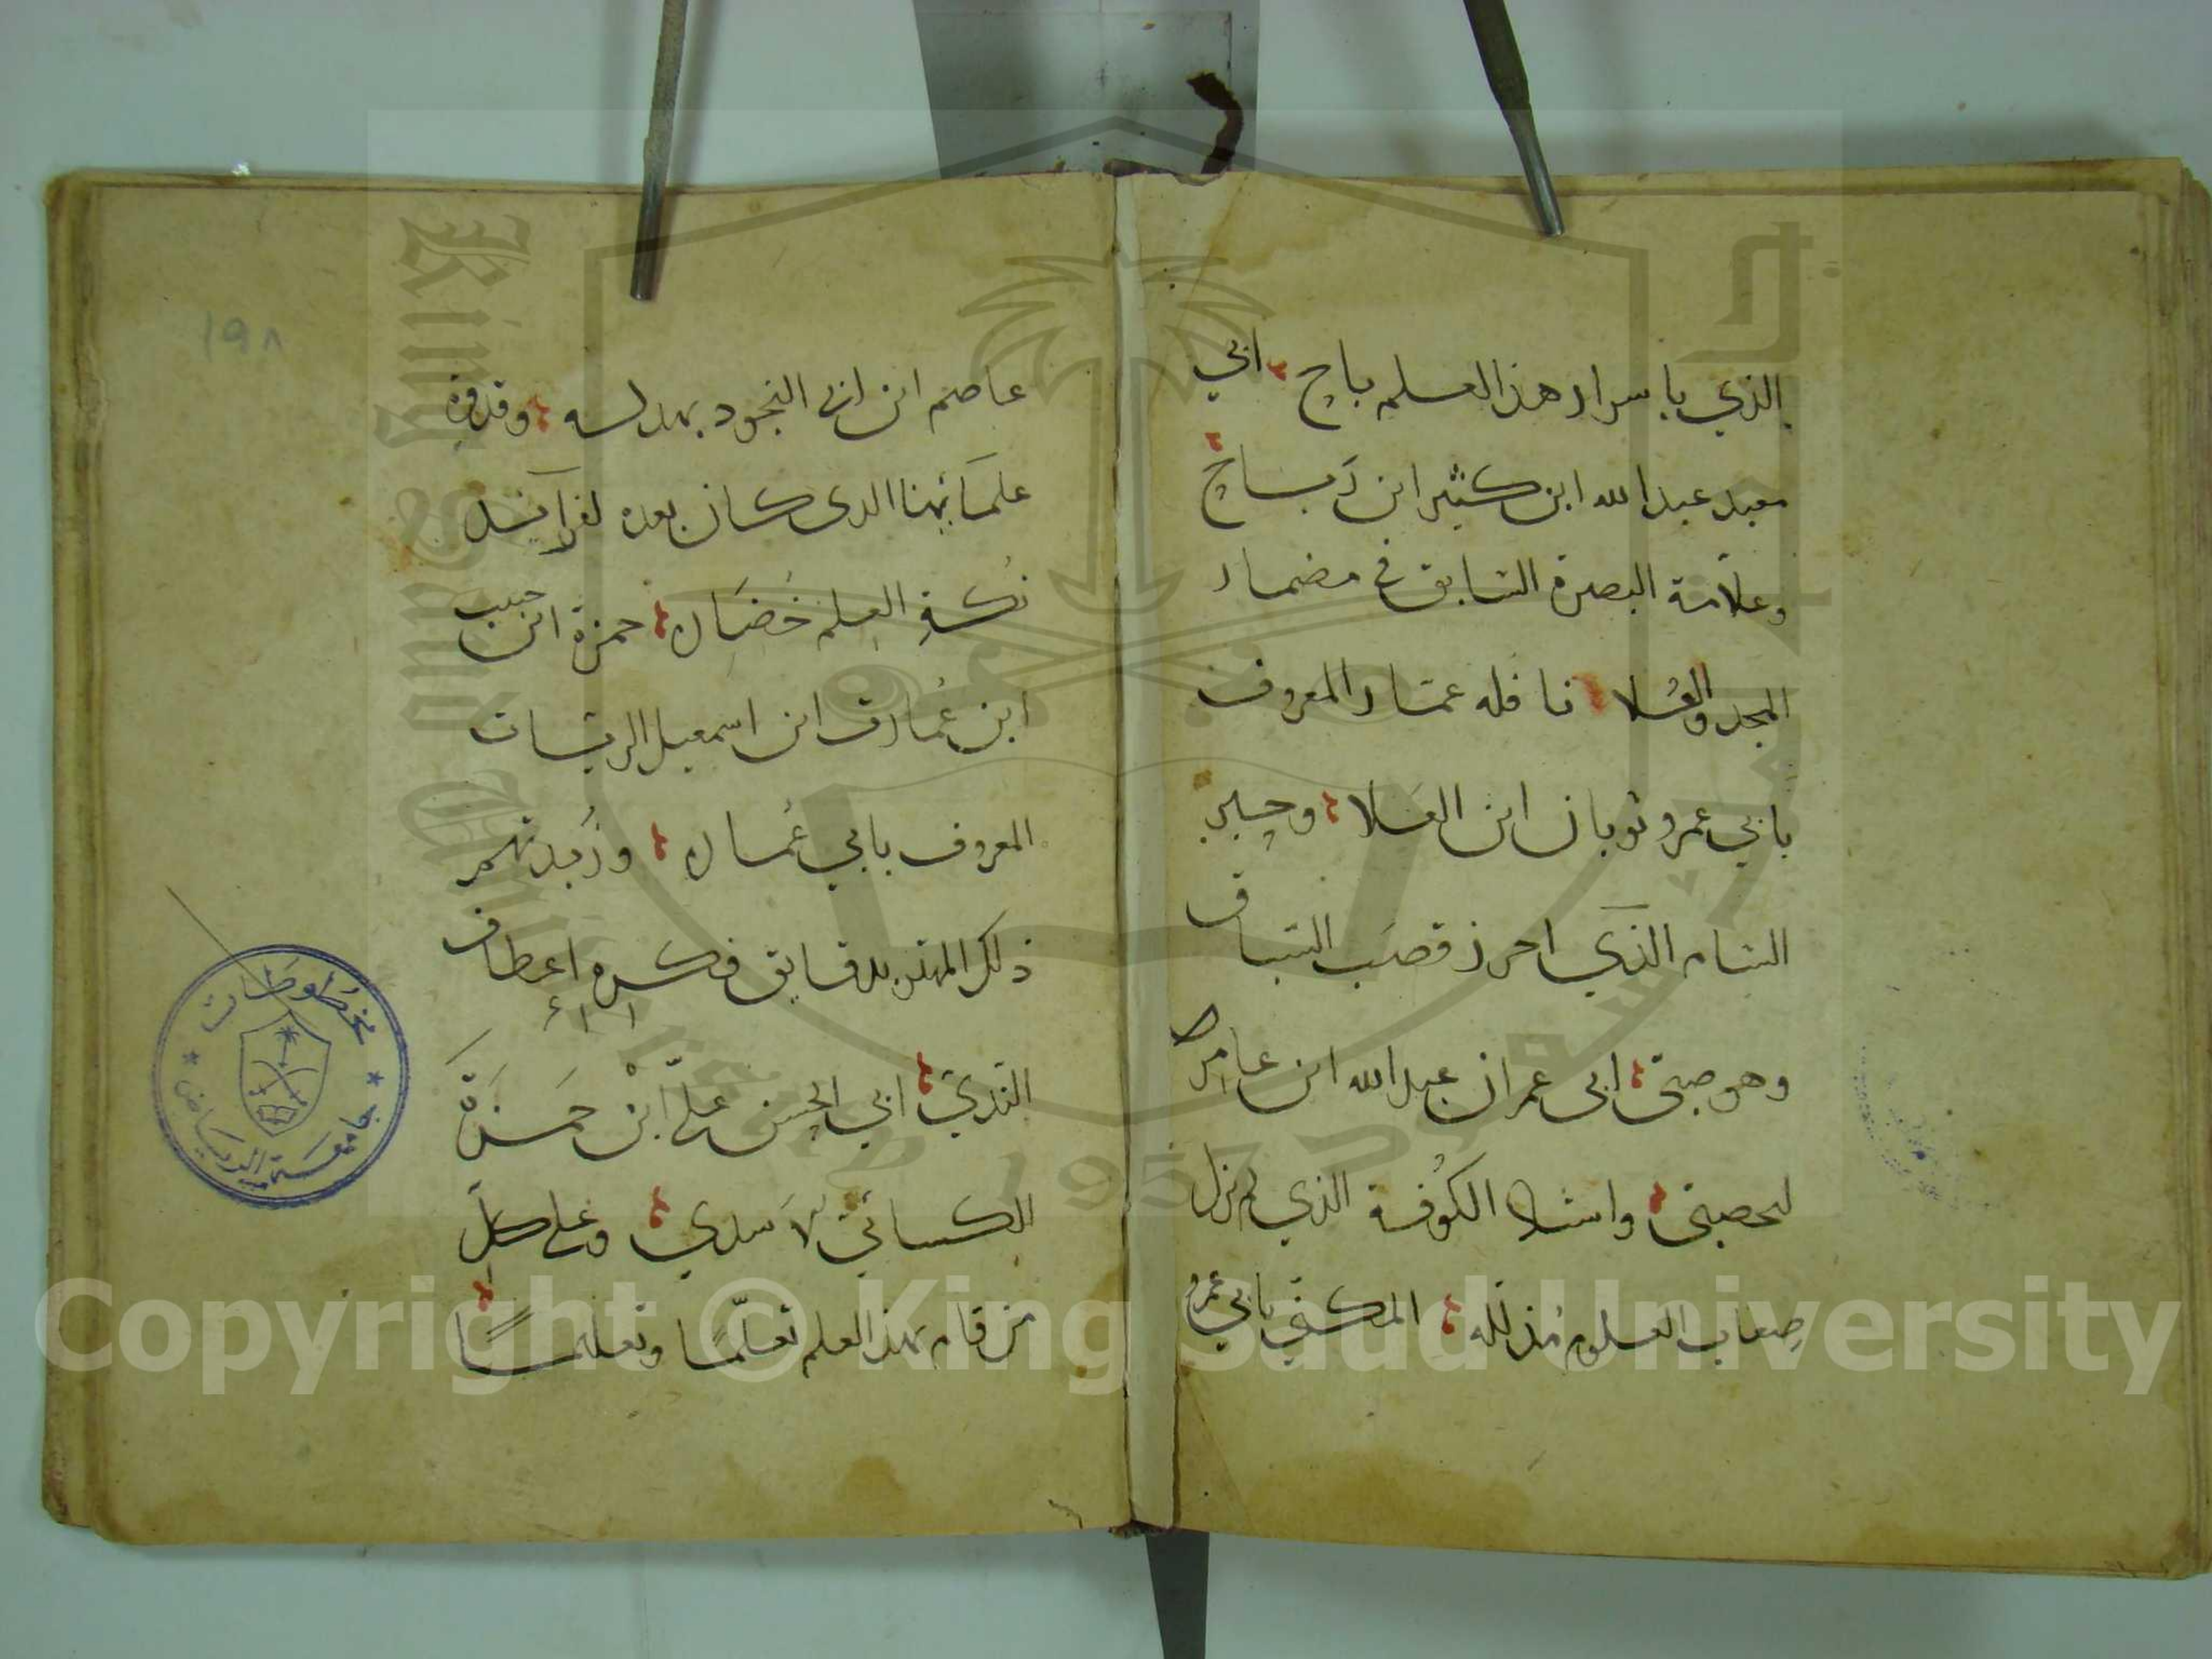 الذي باسرار هذا العلم باح ابي
معبد عبد الله ابن كثير ابن رباح
وعلامة البصرة السابق في مضمار
المجد والعُلا فافله عمار المعروف
بابي عمرو ثوبان ابن العَلا وحبر
الشام الذي احرز قصَب السباق
وهو صبي ابي عمران عبد الله ابن عامر
لحصبي الكُوفة الذي لم يزل
صِعاب العلوم مُذلله المكني بابي عمرو
عاصم ابن ابي النجود بهدلسه وقدوة
علمائهنا الدى كان بعده
العلم حمزة ابن حبيب
ابن عُمارة ابن اسمعيل الزيات
المعروف بابي عُمار وزُبدتهم
ذلك بدقايق فكره اعطاف
الندي ابي الحسن علي ابن حَمزَة
الكسائي لاَسدي وعلى كلِّ
من قام بهذا العلم تعلّمًا وتعليمًا
١٩٨
مخطوطات
جامعة الرياض
King Saud University
جامعة الملك سعود
1957
Copyright © King Saud University